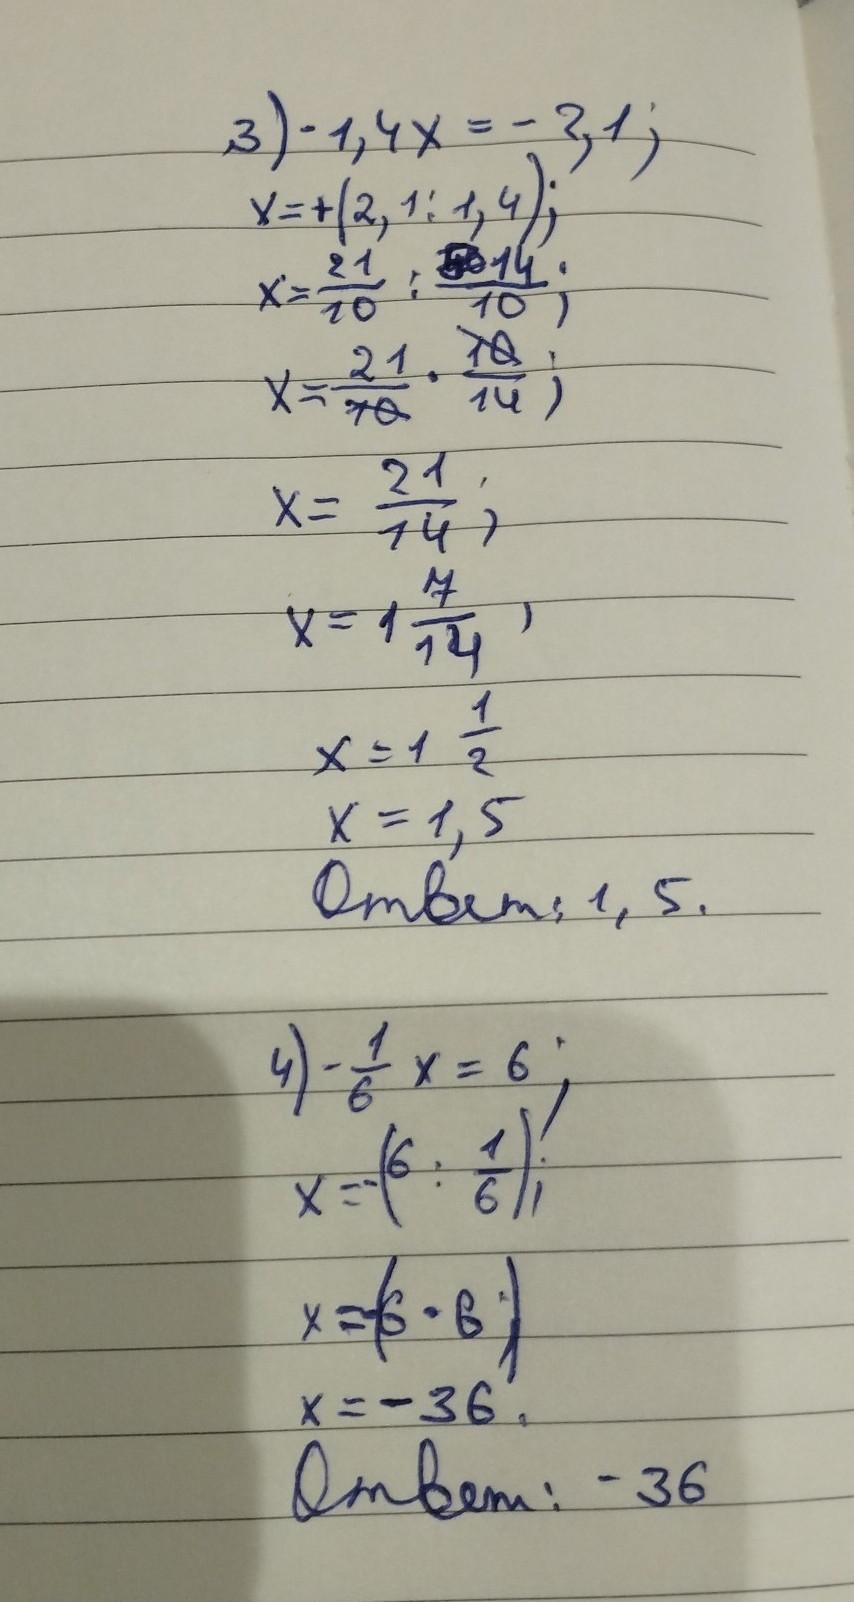 3) -1,4x = -2,1;
x=+(2,1:1,4);
x=21/10 : 14/10;
x=21/10 · 10/14;
x= 21/14;
x= 1 7/14,
x=1 1/2
x=1,5
Ответ: 1,5.
4) -1/6 x = 6;
x=-(6 : 1/6);
x=-(6·6)
x=-36.
Ответ: -36